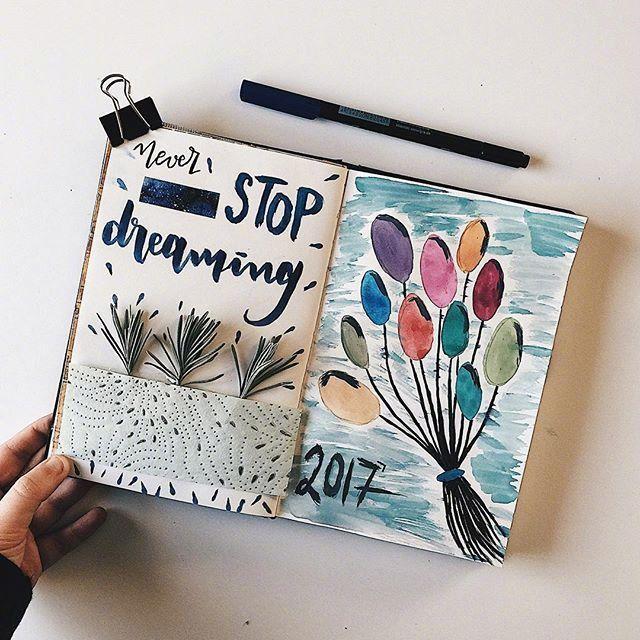 never
STOP
dreaming
2017